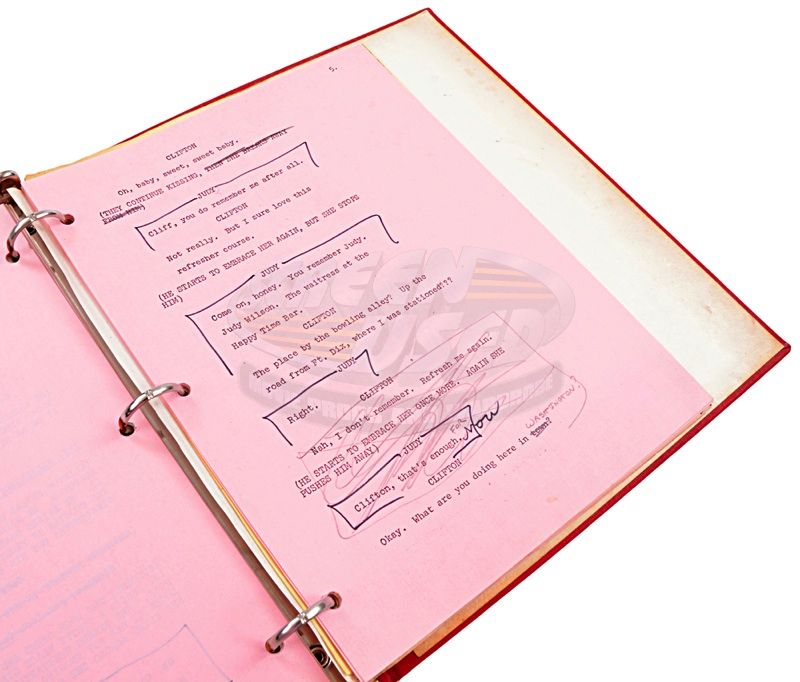 5.
CLIFTON
Oh, baby, sweet, sweet baby.
(THEY CONTINUE KISSING, THEN SHE BREAKS AWAY
FROM HIM)
JUDY
Cliff, you do remember me after all.
CLIFTON
Not really. But I sure love this
refresher course.
(HE STARTS TO EMBRACE HER AGAIN, BUT SHE STOPS
HIM)
JUDY
Come on, honey. You remember Judy.
Judy Wilson. The waitress at the
Happy Time Bar.
CLIFTON
The place by the bowling alley? Up the
road from Ft. Dix, where I was stationed???
JUDY
Right.
CLIFTON
Nah, I don't remember. Refresh me again.
(HE STARTS TO EMBRACE HER ONCE MORE. AGAIN SHE
PUSHES HIM AWAY)
JUDY
Clifton, that's enough, FOR Now
CLIFTON
WASHINGTON?
Okay. What are you doing here in town?